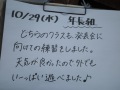 10/29(水) 年長組
どちらのクラスも発表会に
向けての練習をしました。
天気が良かったので外でも
いーっぱい遊べました♪